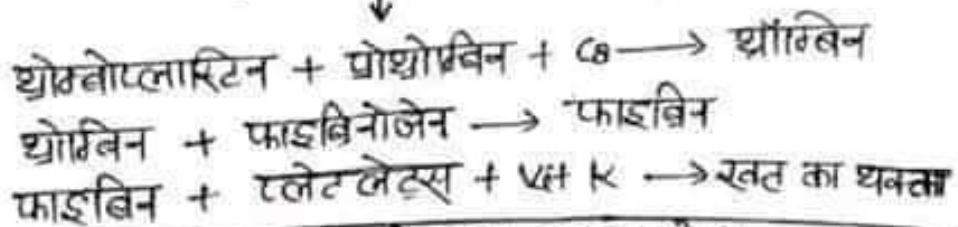 थ्रोम्बोप्लास्टिन + प्रोथ्रोम्बिन + Ca → थ्रॉम्बिन
थ्रोम्बिन + फाइब्रिनोजेन → फाइब्रिन
फाइब्रिन + प्लेटलेट्स + Vit K → रक्त का थक्का